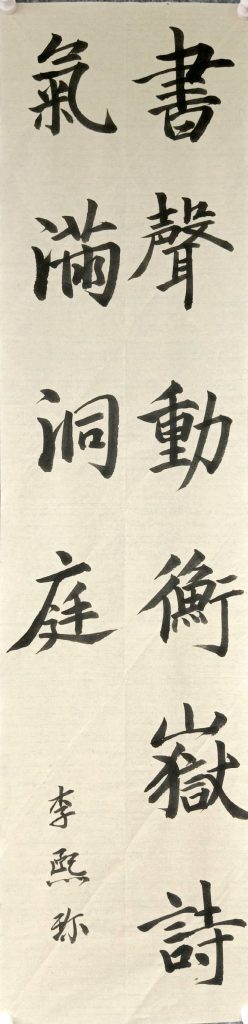 書聲動衡嶽詩
氣滿洞庭
李熙珎